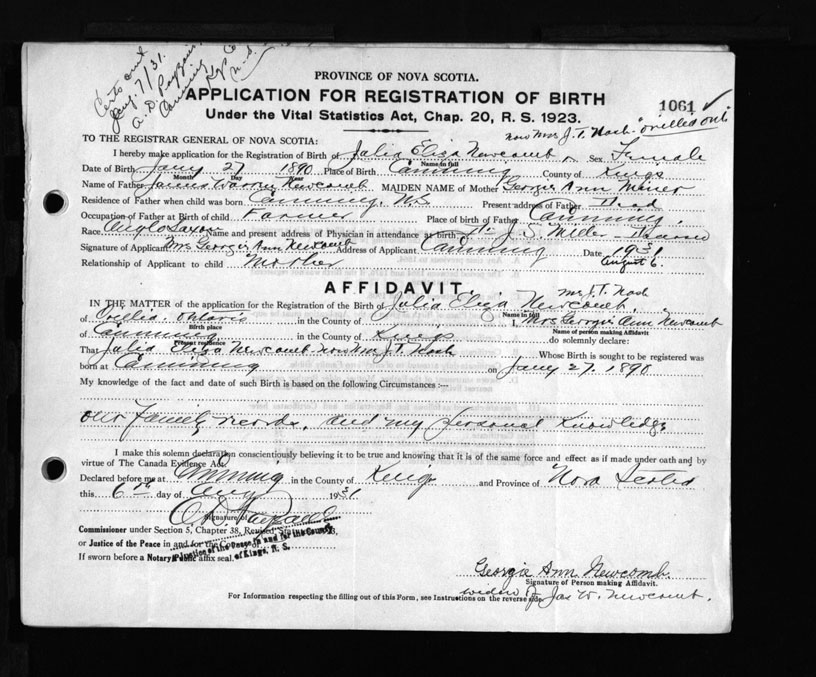 Certs sent
Aug. 7/31.
Canning
N.S.
PROVINCE OF NOVA SCOTIA.
APPLICATION FOR REGISTRATION OF BIRTH
1061 ✓
Under the Vital Statistics Act, Chap. 20, R. S. 1923.
now Mrs J. T. Nash Orillia Ont
TO THE REGISTRAR GENERAL OF NOVA SCOTIA:
I hereby make application for the Registration of Birth of Julia Eliza Newcomb Sex Female
Name in full
Date of Birth Jany 27 1890 Place of Birth Canning County of Kings
Month Day Year
Name of Father James Warren Newcomb MAIDEN NAME of Mother Georgie Ann Miner
Residence of Father when child was born Canning, N.S Present address of Father Dead
Occupation of Father at Birth of child Farmer Place of birth of Father Canning,
Race Anglo Saxon Name and present address of Physician in attendance at birth J. S. Miller
Signature of Applicant Mrs Georgie Ann Newcomb Address of Applicant Canning Date 1931
August 6.
Relationship of Applicant to child Mother
AFFIDAVIT.
Mrs J. T. Nash
IN THE MATTER of the application for the Registration of the Birth of Julia Eliza Newcomb,
Name in full
of Orillia, Ontario in the County of I, Mrs Georgie Ann Newcomb
Birth place Name of person making Affidavit
of Canning in the County of Kings do solemnly declare:
Present residence
That Julia Eliza Newcomb Now Mrs J. T. Nash Whose Birth is sought to be registered was
born at Canning on Jany 27, 1890
My knowledge of the fact and date of such Birth is based on the following Circumstances :—
our Family records, and my personal Knowledge
I make this solemn declaration conscientiously believing it to be true and knowing that it is of the same force and effect as if made under oath and by
virtue of The Canada Evidence Act.
Declared before me at Canning in the County of Kings and Province of Nova Scotia
this 6th day of Aug 1931
Signature of
Commissioner under Section 5, Chapter 38, Revised
or Justice of the Peace in and for the County of
Justice of the Peace in and for the County
of Kings, N. S.
If sworn before a Notary Public affix seal.
Georgie Ann Newcomb.
Signature of Person making Affidavit.
widow of Jas W. Newcomb.
For Information respecting the filling out of this Form, see Instructions on the reverse side.